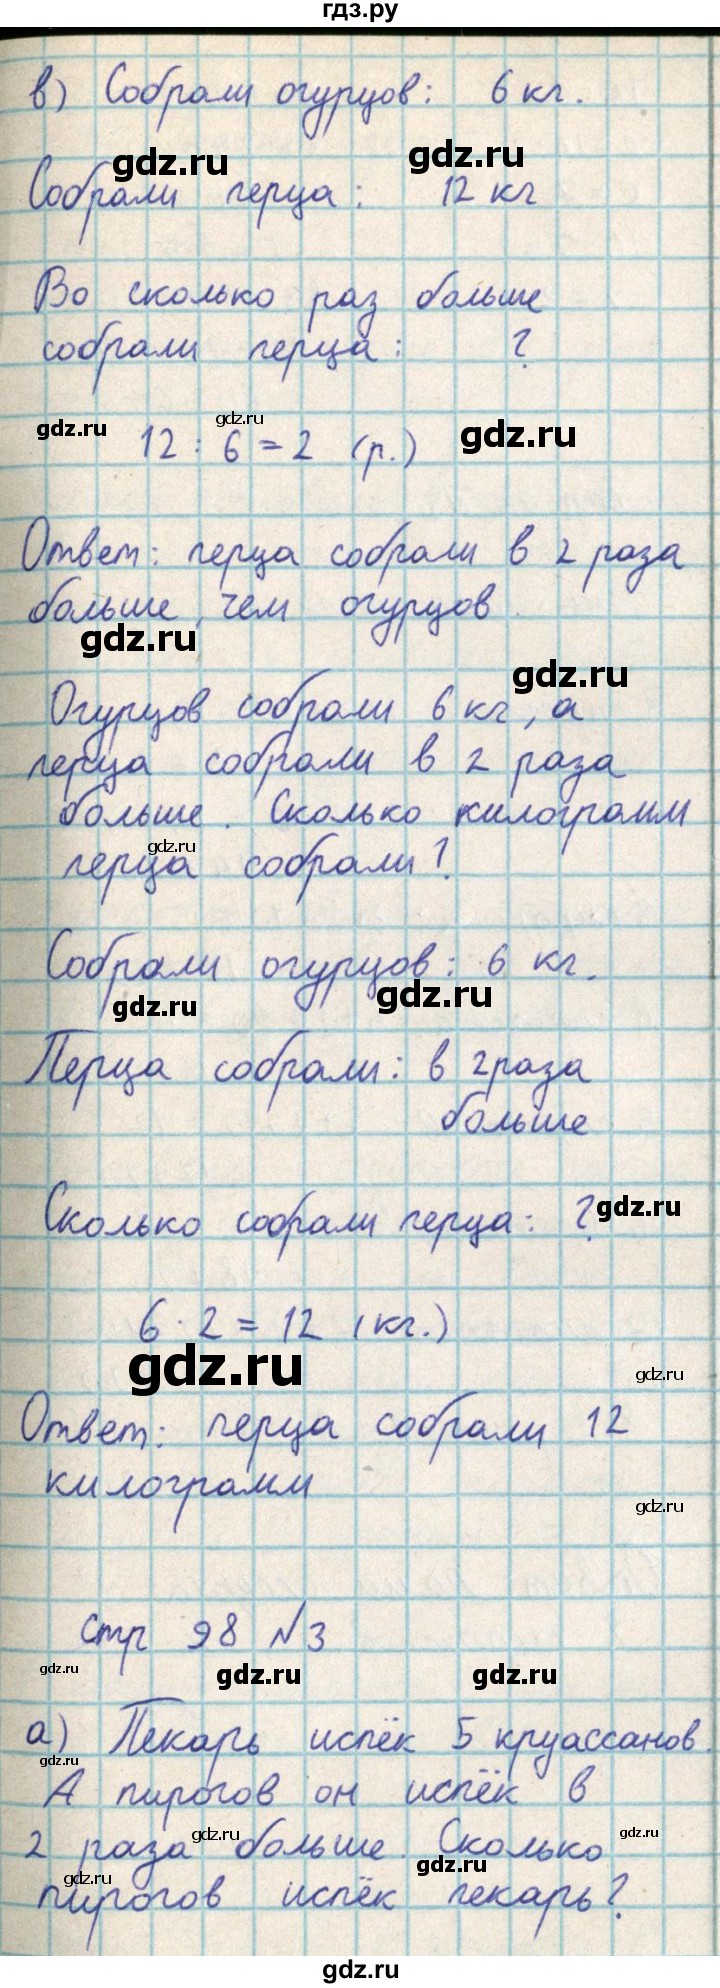 гдз.ру
в) Собрали огурцов: 6 кг.
gdz.ru gdz.ru
Собрали перца: 12 кг
Во сколько раз больше
собрали перца: ?
gdz.ru gdz.ru gdz.ru
12 : 6 = 2 (р.)
Ответ: перца собрали в 2 раза
больше, чем огурцов.
gdz.ru
gdz.ru
Огурцов собрали 6 кг, а
перца собрали в 2 раза
больше. Сколько килограмм
gdz.ru
перца собрали?
Собрали огурцов: 6 кг.
gdz.ru gdz.ru
Перца собрали: в 2 раза
больше
Сколько собрали перца: ?
gdz.ru
6 · 2 = 12 (кг.)
gdz.ru gdz.ru
Ответ: перца собрали 12
килограмм
gdz.ru
стр 98 №3
gdz.ru gdz.ru gdz.ru
а) Пекарь испёк 5 круассанов.
gdz.ru
А пирогов он испёк в
2 раза больше. Сколько
gdz.ru gdz.ru
gdz.ru gdz.ru
пирогов испёк пекарь?
gdz.ru